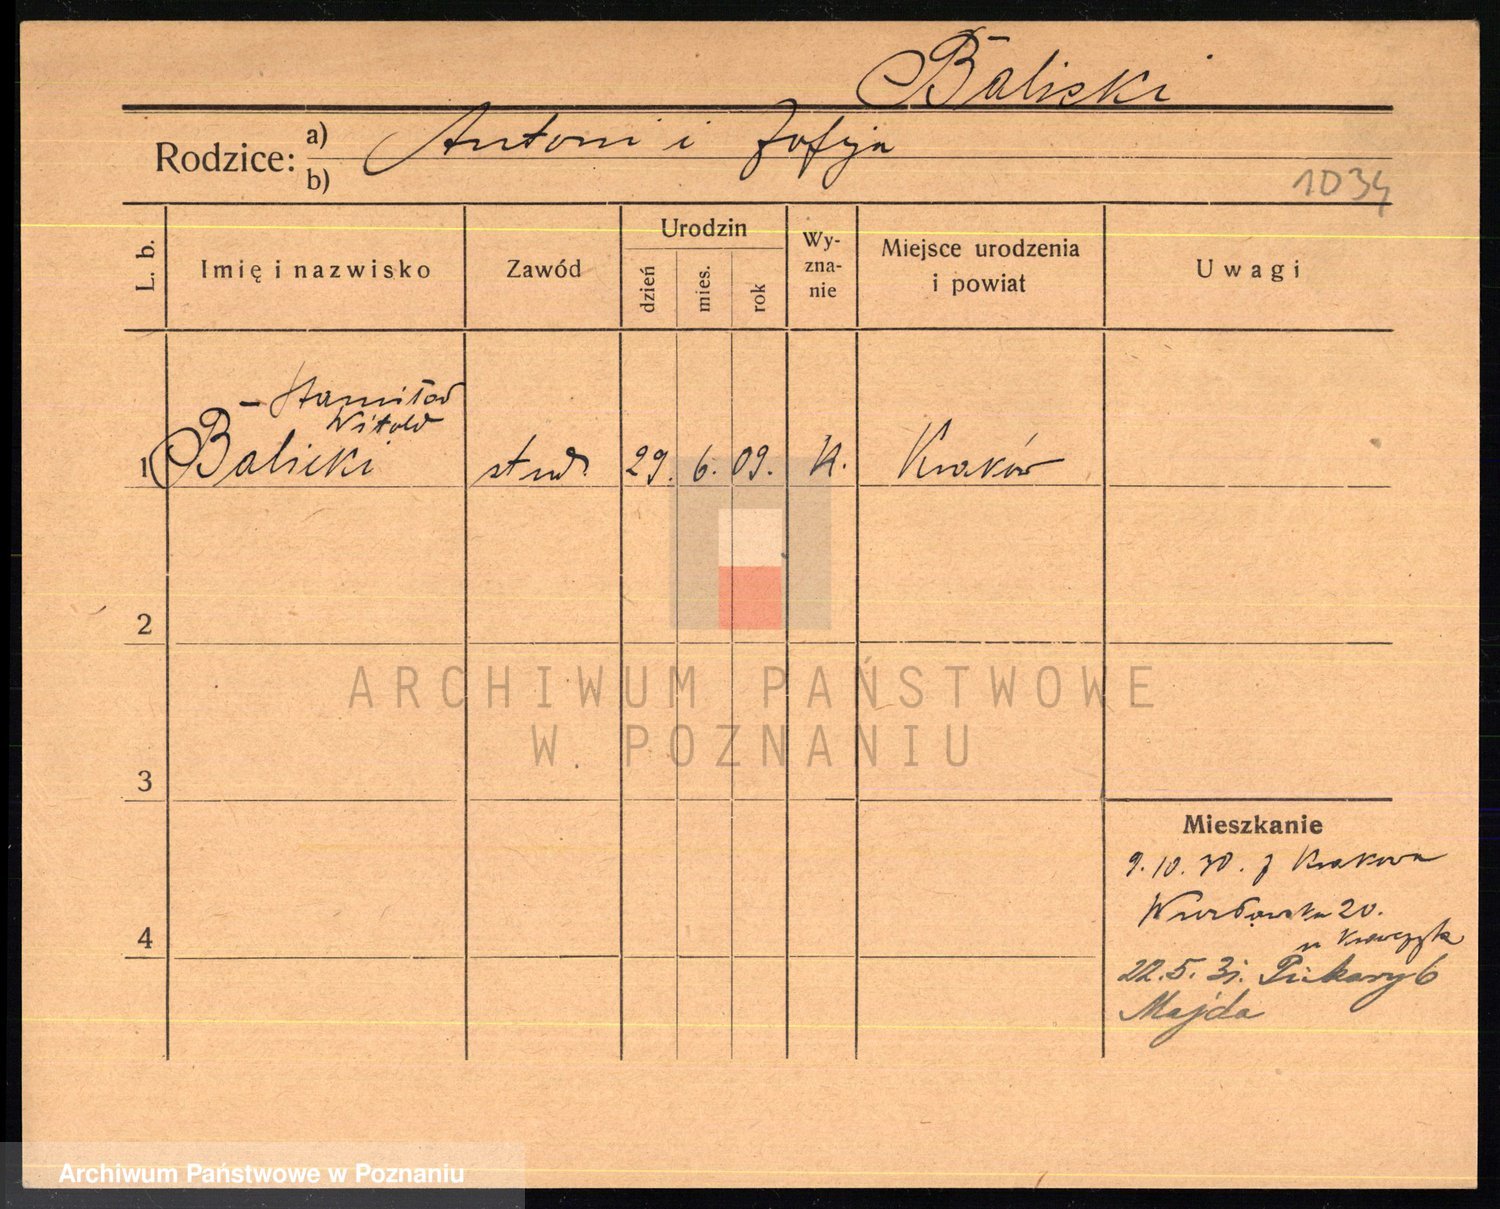 Balicki
Rodzice: a) Antoni i Zofja
b)
1034
L. b.
Imię i nazwisko
Zawód
Urodzin
dzień
mies.
rok
Wy-
zna-
nie
Miejsce urodzenia
i powiat
Uwagi
Witold
1 Balicki stud. 29. 6. 09. k. Kraków
2
3
4
Mieszkanie
9.10.30. z Krakowa
20.
u Krawczyk
22.5.31. Piekary 6
Majda
ARCHIWUM PAŃSTWOWE
W POZNANIU
Archiwum Państwowe w Poznaniu